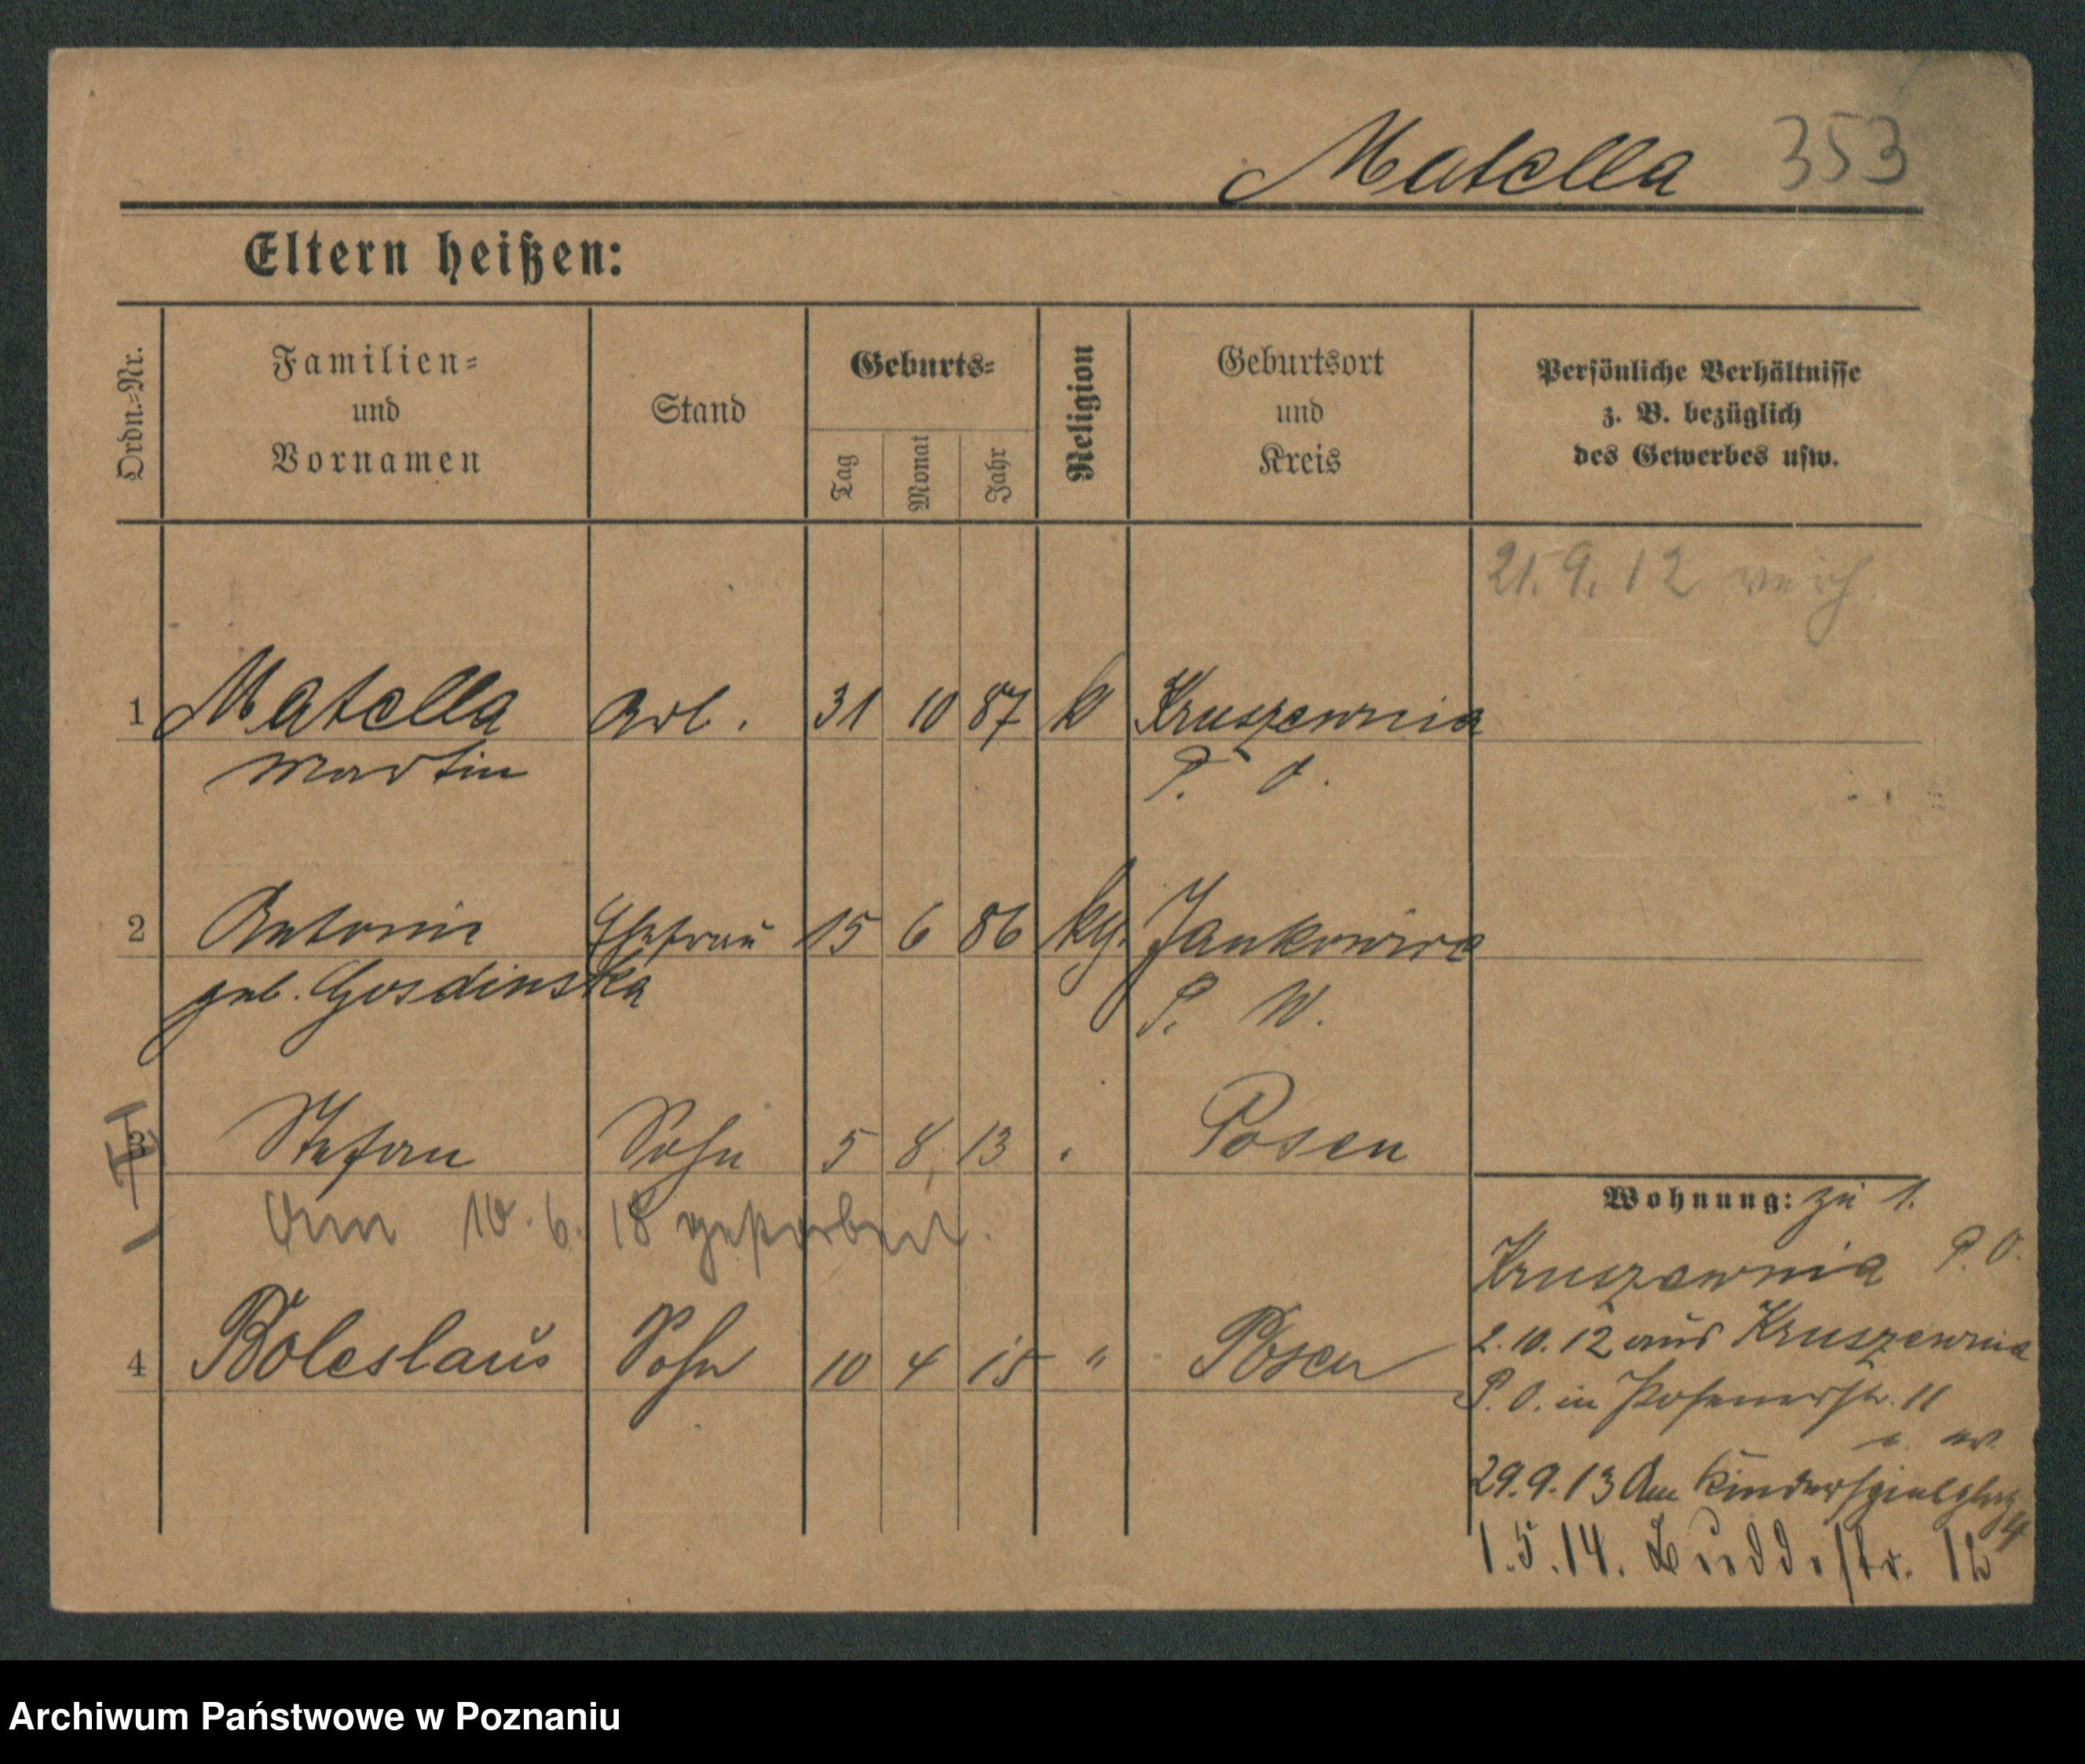 Matella 353
Eltern heißen:
Ordn.-Nr.
Familien-
und
Vornamen
Stand
Geburts-
Tag
Monat
Jahr
Religion
Geburtsort
und
Kreis
Persönliche Verhältnisse
z. B. bezüglich
des Gewerbes usw.
21.9.12 verh.
1 Matella Arb. 31 10 87 k Kruszewnia
Martin P. O.
2 Antonie Ehefrau 15 6 86 kg. Jankowice
geb. Gosdinska P. W.
3 Stefan Sohn 5 8 13 " Posen
Am 10.6.18 gestorben.
4 Boleslaus Sohn 10 4 15 " Posen
Wohnung: zu 1.
Kruszewnia P. O.
2.10.12 aus Kruszewnia
P. O. in Posenerstr. 11
29.9.13 Am Kinderspielplatz 4
1.5.14. Buddestr. 12
Archiwum Państwowe w Poznaniu